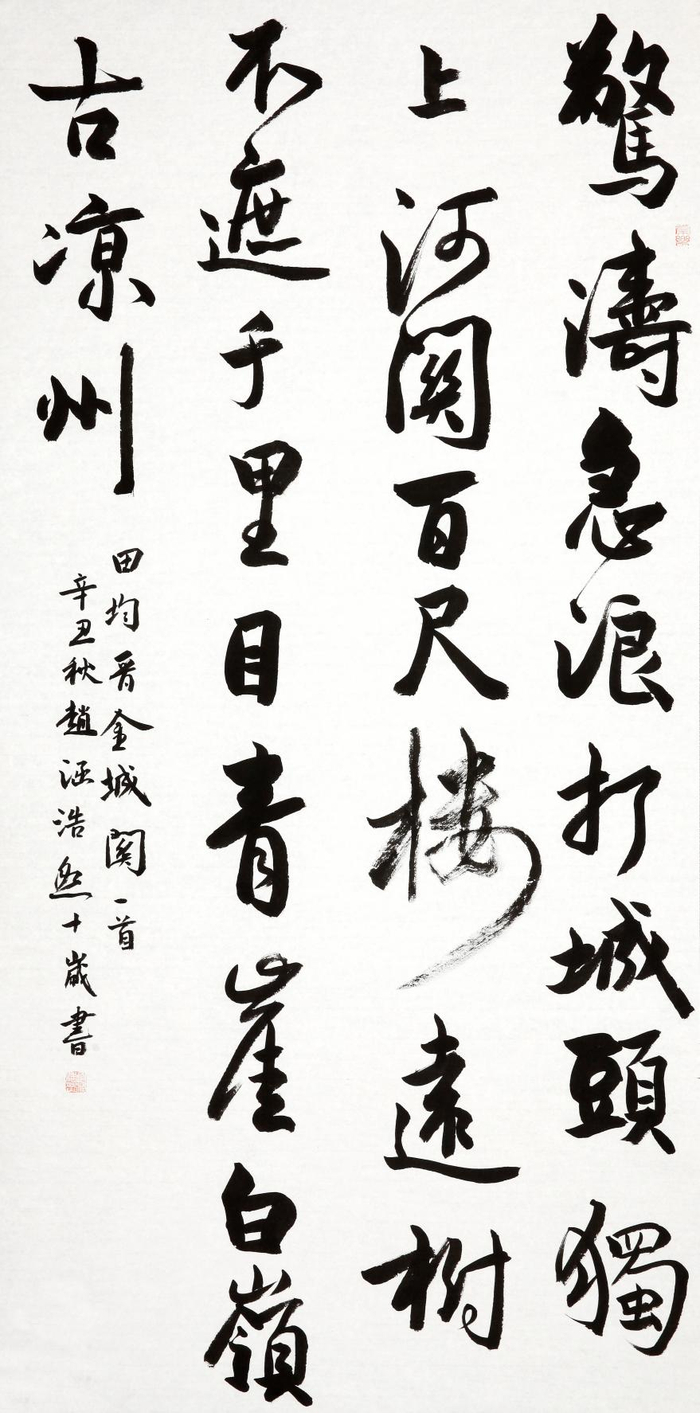 驚濤急浪打城頭獨
上河關百尺楼遠樹
不遮千里目青崖白嶺
古凉州
田均晋金城関一首
辛丑秋趙汪浩然十歲書